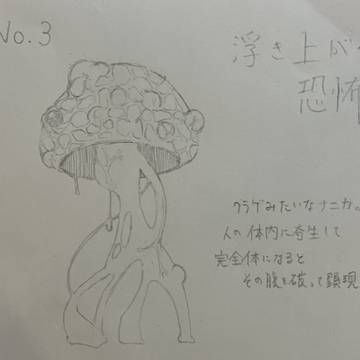 No. 3
浮き上が
恐怖
クラゲみたいなナニカ。
人の体内に寄生して
完全体になると
その腹を破って顕現